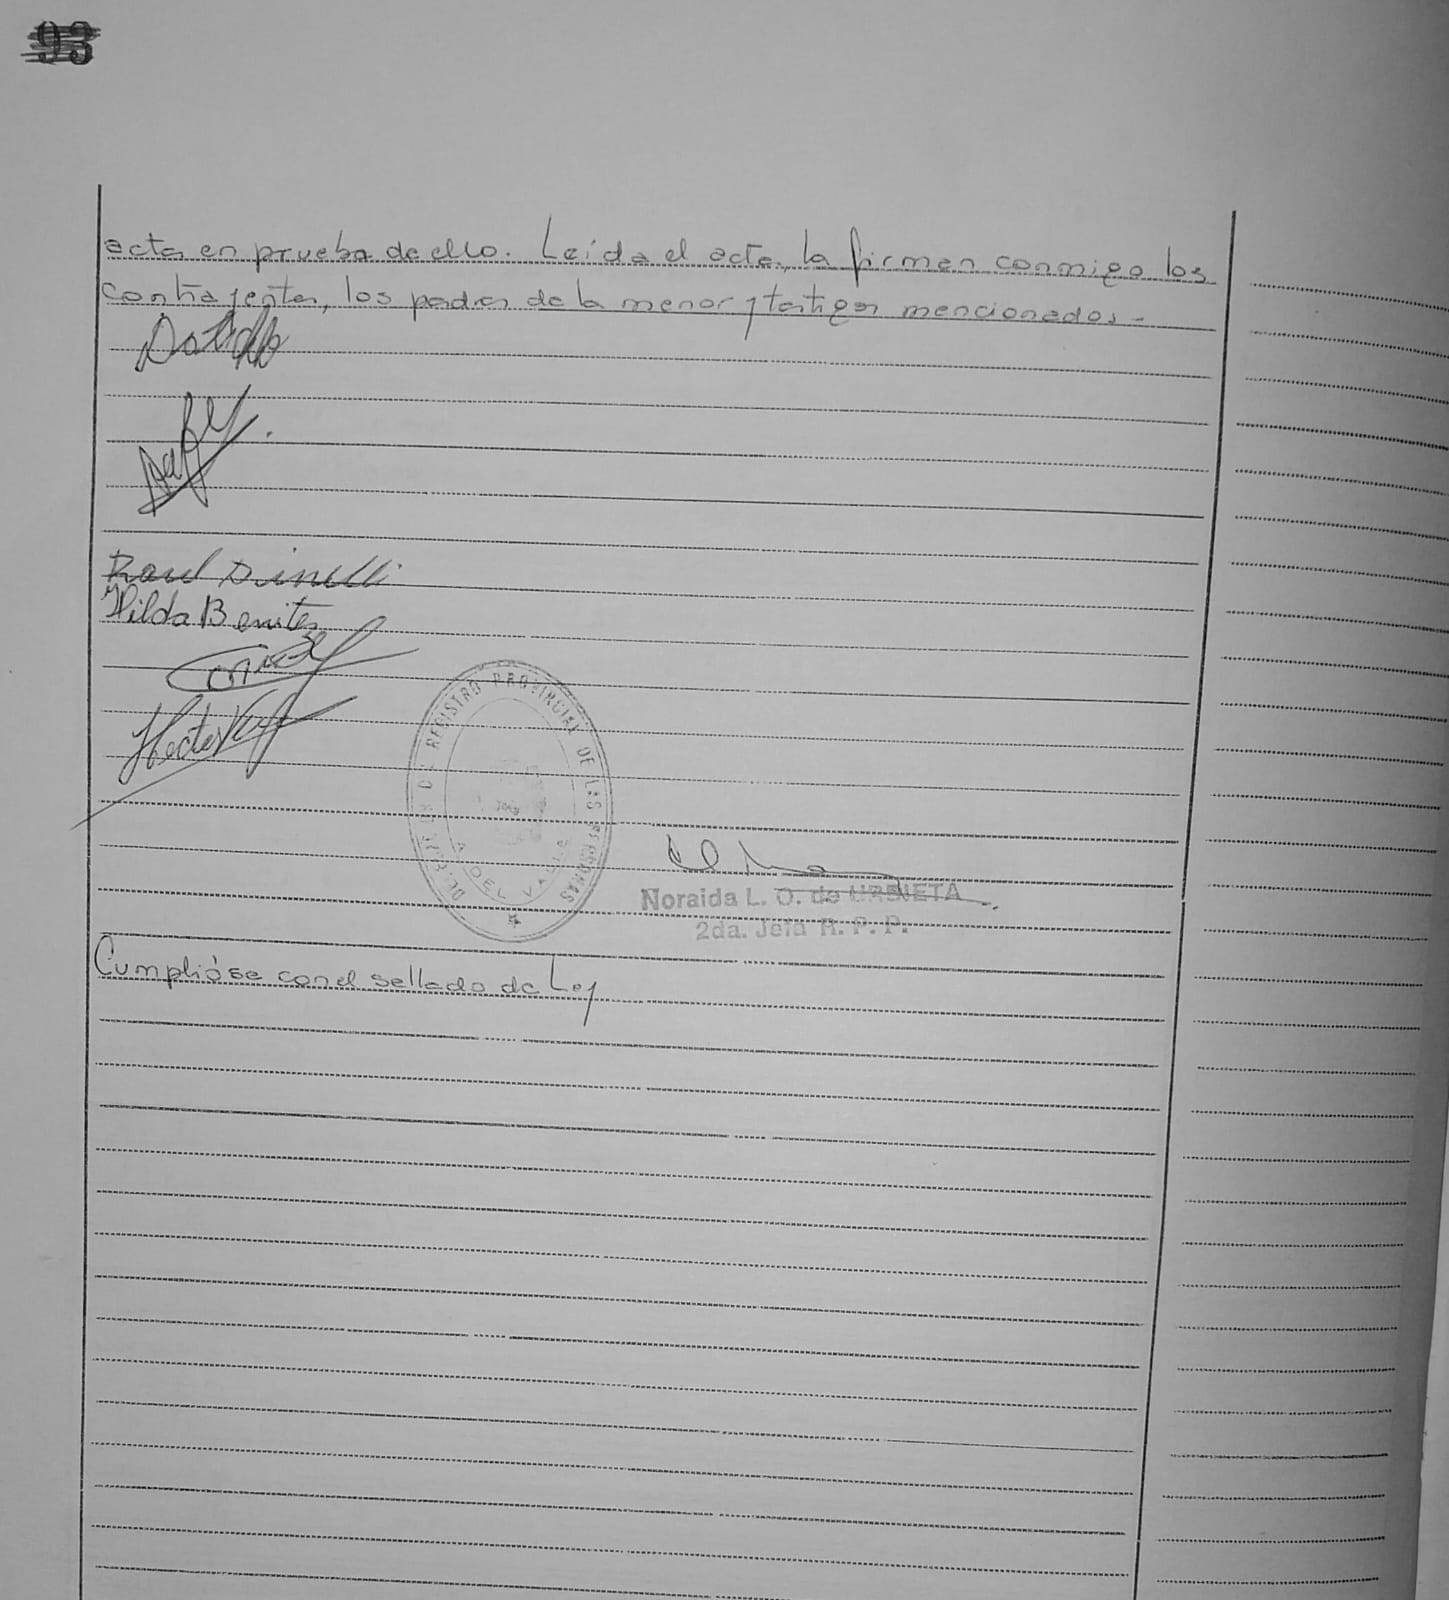 93
acta en prueba de ello. Leída el acta, la firman conmigo los
contrayentes, los padres de la menor y testigos mencionados.-
Raul Dinelli
Hilda Benitez
Hector
REGISTRO PROVINCIAL DE LAS PERSONAS
DEL VALLE
Noraida L. O. de URBIETA
2da. Jefa R. P. P.
Cumplióse con el sellado de Ley